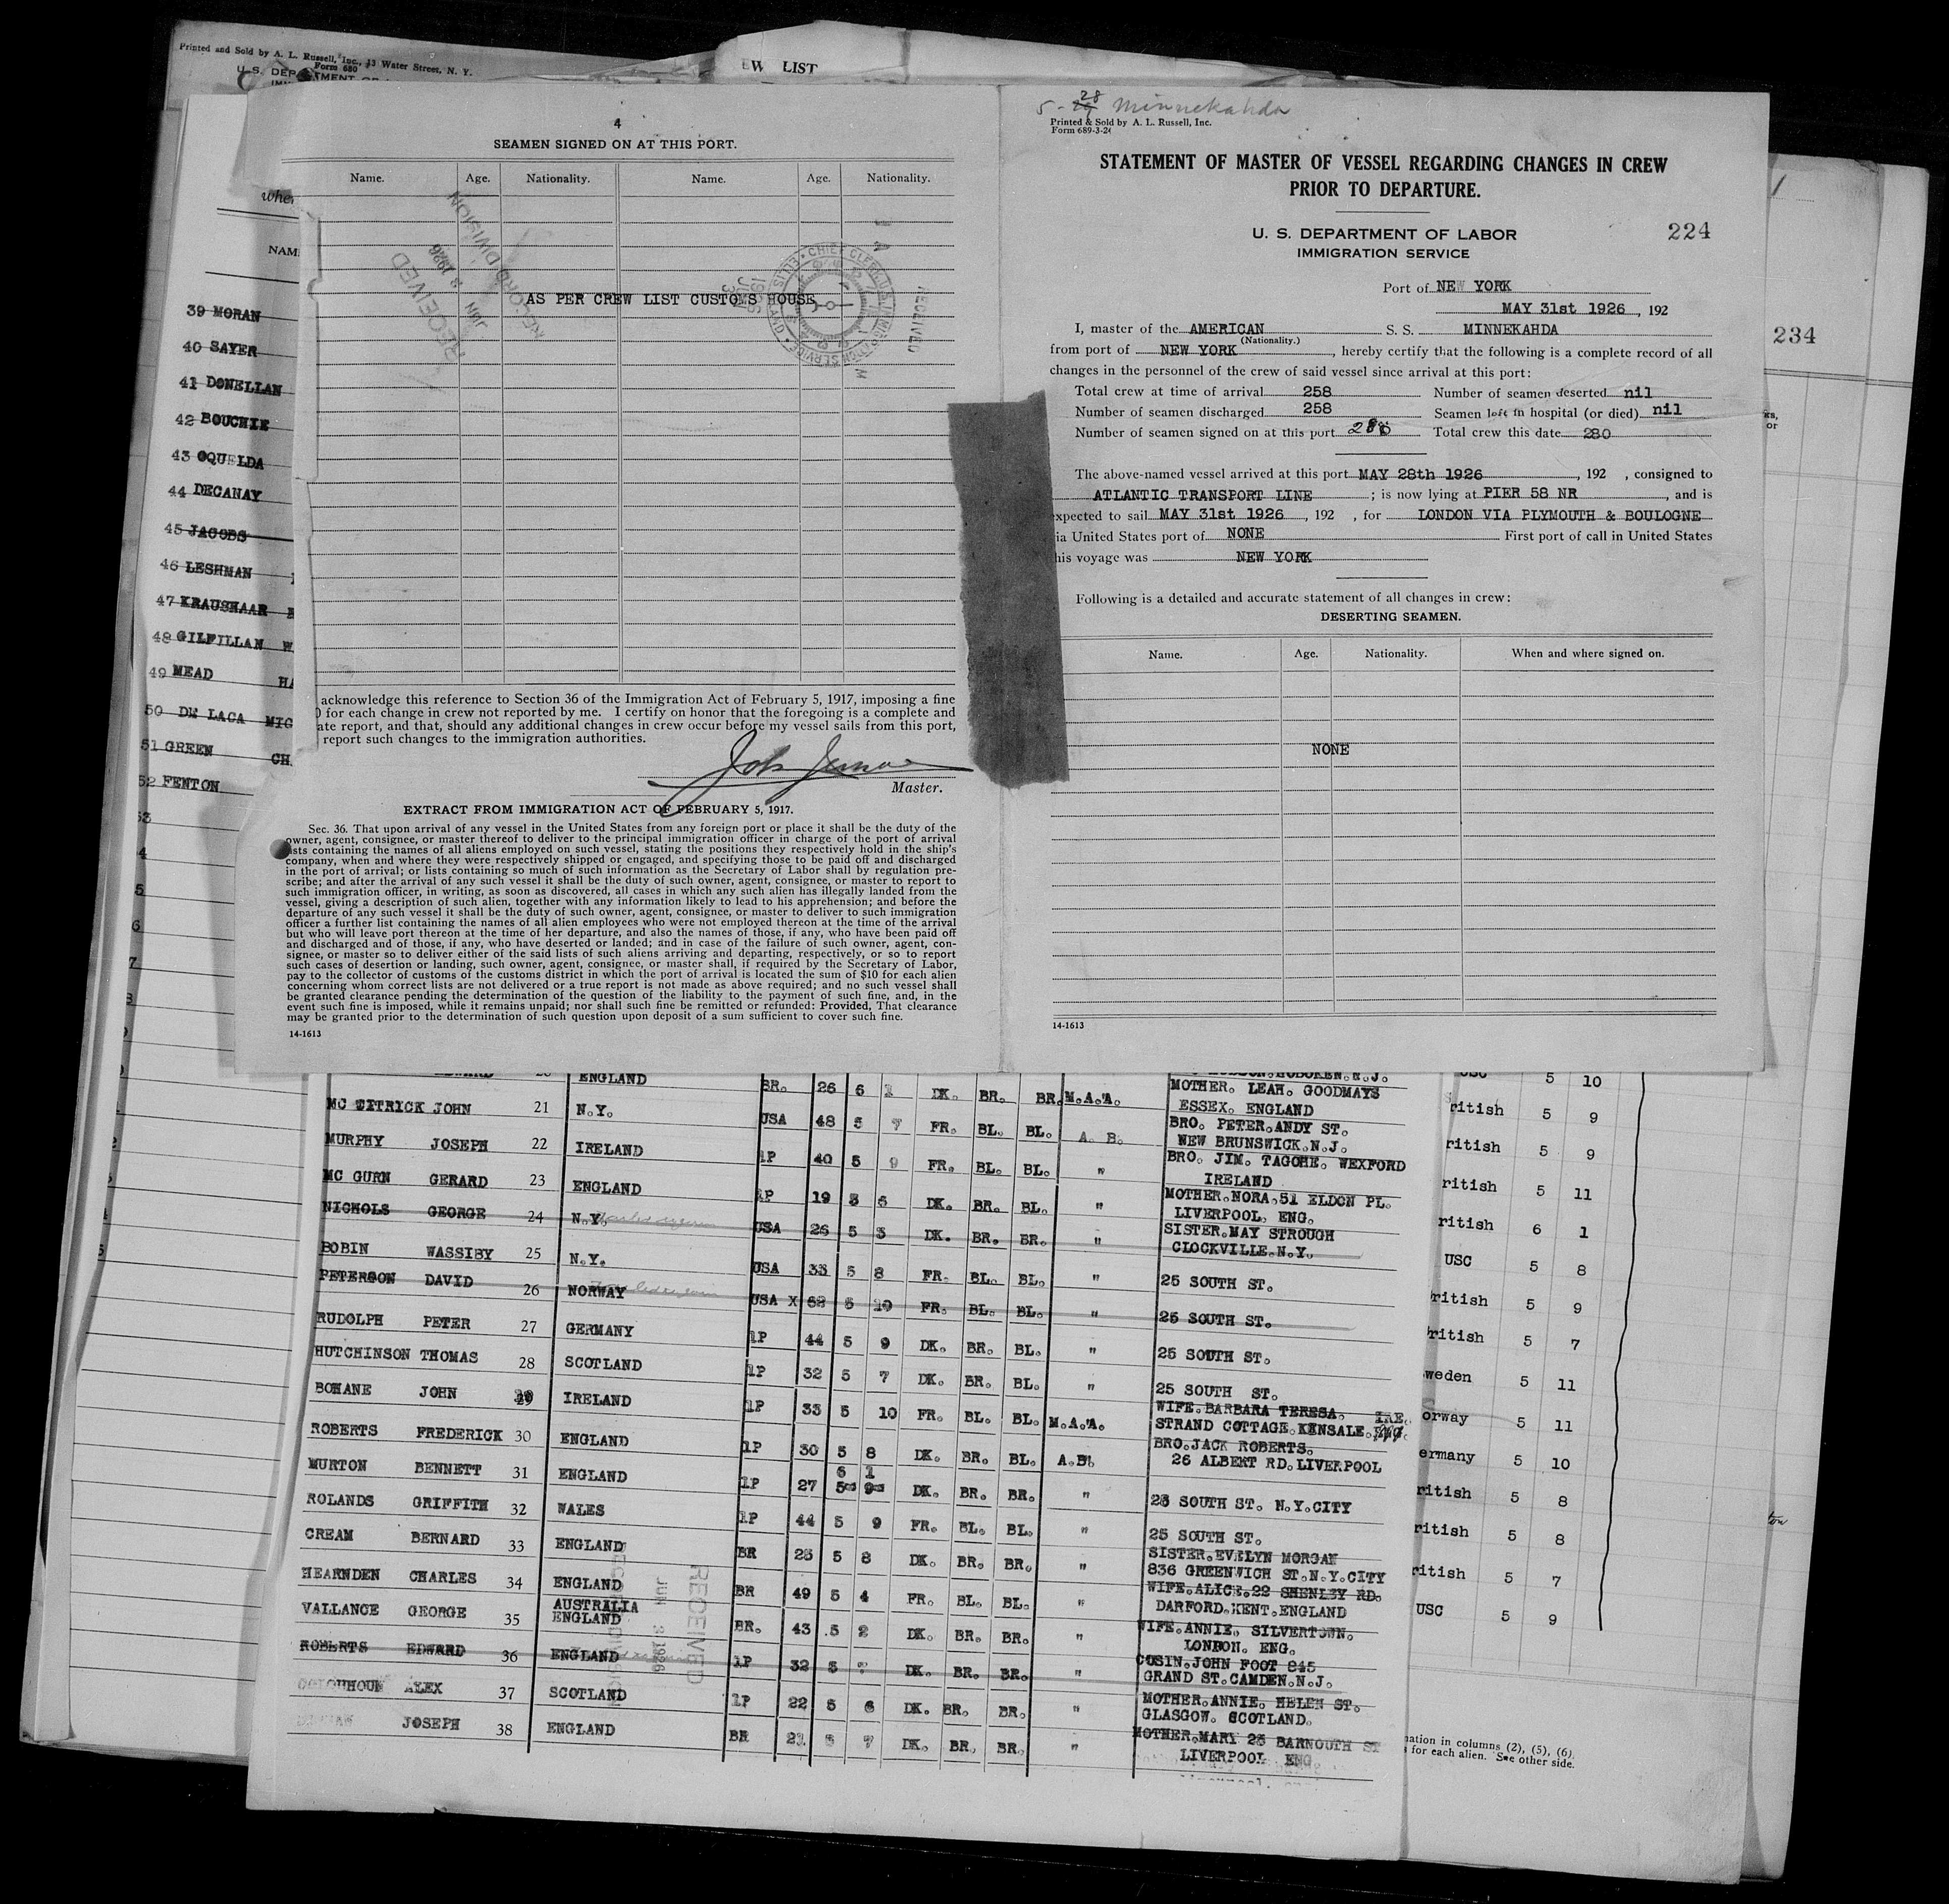 Printed and Sold by A. L. Russell, Inc., 13 Water Street, N. Y.
Form 680
EW LIST
NAM
39 MORAN
40 SAYER
41 DONELLAN
42 BOUCHIE
43 OQUELDA
44 DECANAY
45 JACOBS
46 LESHMAN
47 KRAUSHAAR
48 GILFILLAN W
49 MEAD HA
50 DE LACA MIG
51 GREEN CH.
52 FENTON
4
SEAMEN SIGNED ON AT THIS PORT.
Name. Age. Nationality. Name. Age. Nationality.
RECEIVED
JUN 3 1926
RECORD DIVISION
AS PER CREW LIST CUSTOMS HOUSE
RECEIVED
acknowledge this reference to Section 36 of the Immigration Act of February 5, 1917, imposing a fine
0 for each change in crew not reported by me. I certify on honor that the foregoing is a complete and
ate report, and that, should any additional changes in crew occur before my vessel sails from this port,
report such changes to the immigration authorities.
Master.
EXTRACT FROM IMMIGRATION ACT OF FEBRUARY 5, 1917.
Sec. 36. That upon arrival of any vessel in the United States from any foreign port or place it shall be the duty of the
owner, agent, consignee, or master thereof to deliver to the principal immigration officer in charge of the port of arrival
lists containing the names of all aliens employed on such vessel, stating the positions they respectively hold in the ship's
company, when and where they were respectively shipped or engaged, and specifying those to be paid off and discharged
in the port of arrival; or lists containing so much of such information as the Secretary of Labor shall by regulation pre-
scribe; and after the arrival of any such vessel it shall be the duty of such owner, agent, consignee, or master to report to
such immigration officer, in writing, as soon as discovered, all cases in which any such alien has illegally landed from the
vessel, giving a description of such alien, together with any information likely to lead to his apprehension; and before the
departure of any such vessel it shall be the duty of such owner, agent, consignee, or master to deliver to such immigration
officer a further list containing the names of all alien employees who were not employed thereon at the time of the arrival
but who will leave port thereon at the time of her departure, and also the names of those, if any, who have been paid off
and discharged and of those, if any, who have deserted or landed; and in case of the failure of such owner, agent, con-
signee, or master so to deliver either of the said lists of such aliens arriving and departing, respectively, or so to report
such cases of desertion or landing, such owner, agent, consignee, or master shall, if required by the Secretary of Labor,
pay to the collector of customs of the customs district in which the port of arrival is located the sum of $10 for each alien
concerning whom correct lists are not delivered or a true report is not made as above required; and no such vessel shall
be granted clearance pending the determination of the question of the liability to the payment of such fine, and, in the
event such fine is imposed, while it remains unpaid; nor shall such fine be remitted or refunded: Provided, That clearance
may be granted prior to the determination of such question upon deposit of a sum sufficient to cover such fine.
14-1613
5-28 Minnekahda
Printed & Sold by A. L. Russell, Inc.
Form 689-3-24
STATEMENT OF MASTER OF VESSEL REGARDING CHANGES IN CREW
PRIOR TO DEPARTURE.
U. S. DEPARTMENT OF LABOR
IMMIGRATION SERVICE
224
Port of NEW YORK
MAY 31st 1926, 192
I, master of the AMERICAN S. S. MINNEKAHDA
(Nationality.)
from port of NEW YORK, hereby certify that the following is a complete record of all
changes in the personnel of the crew of said vessel since arrival at this port:
Total crew at time of arrival 258 Number of seamen deserted nil
Number of seamen discharged 258 Seamen left in hospital (or died) nil
Number of seamen signed on at this port Total crew this date 280
The above-named vessel arrived at this port MAY 28th 1926, 192 , consigned to
ATLANTIC TRANSPORT LINE ; is now lying at PIER 58 NR , and is
expected to sail MAY 31st 1926 , 192 , for LONDON VIA PLYMOUTH & BOULOGNE
ia United States port of NONE First port of call in United States
his voyage was NEW YORK
Following is a detailed and accurate statement of all changes in crew:
DESERTING SEAMEN.
Name. Age. Nationality. When and where signed on.
NONE
14-1613
234
ENGLAND BR. 26 6 1 DK. BR. BR. M.A.A. MOTHER. LEAH. GOODMAYS
ESSEX. ENGLAND
MC TITRICK JOHN 21 N.Y. USA 48 5 7 FR. BL. BL. A. B. BRO. PETER.ANDY ST.
NEW BRUNSWICK.N.J.
MURPHY JOSEPH 22 IRELAND 1P 40 5 9 FR. BL. BL. " BRO. JIM. TAGOHE. WEXFORD
IRELAND
MC GURN GERARD 23 ENGLAND 1P 19 5 6 DK. BR. BL. " MOTHER.NORA.51 ELDON PL.
LIVERPOOL. ENG.
NICHOLS GEORGE 24 N.Y. USA 26 5 5 DK. BR. BR. " SISTER.MAY STROUGH
CLOCKVILLE.N.Y.
BOBIN WASSIBY 25 N.Y. USA 33 5 8 FR. BL. BL. " 25 SOUTH ST.
PETERSON DAVID 26 NORWAY USA X 52 5 10 FR. BL. BL. " 25 SOUTH ST.
RUDOLPH PETER 27 GERMANY 1P 44 5 9 DK. BR. BL. " 25 SOUTH ST.
HUTCHINSON THOMAS 28 SCOTLAND 1P 32 5 7 DK. BR. BL. " 25 SOUTH ST.
BOHANE JOHN 29 IRELAND 1P 33 5 10 FR. BL. BL. M.A.A. WIFE.BARBARA TERESA. IRE.
STRAND COTTAGE.KENSALE.
ROBERTS FREDERICK 30 ENGLAND 1P 30 5 8 DK. BR. BL. A.B. BRO.JACK ROBERTS.
26 ALBERT RD.LIVERPOOL
MURTON BENNETT 31 ENGLAND 1P 27 6 1 DK. BR. BR. " 25 SOUTH ST. N.Y.CITY
ROLANDS GRIFFITH 32 WALES 1P 44 5 9 FR. BL. BL. " 25 SOUTH ST.
CREAM BERNARD 33 ENGLAND BR 25 5 8 DK. BR. BR. " SISTER.EVELYN MORGAN
836 GREENWICH ST.N.Y.CITY
HEARNDEN CHARLES 34 ENGLAND BR 49 5 4 FR. BL. BL. " WIFE.ALICE.22 SHENLEY RD.
DARFORD.KENT.ENGLAND
VALLANCE GEORGE 35 AUSTRALIA ENGLAND BR. 43 5 2 DK. BR. BR. " WIFE.ANNIE. SILVERTOWN.
LONDON. ENG.
ROBERTS EDWARD 36 ENGLAND 1P 32 5 DK. BR. BR. " COSIN.JOHN FOOT 845
GRAND ST.CAMDEN.N.J.
ALEX 37 SCOTLAND 1P 22 5 6 DK. BR. BR. " MOTHER.ANNIE. HELEN ST.
GLASGOW. SCOTLAND.
JOSEPH 38 ENGLAND BR 21 5 7 DK. BR. BR. " MOTHER.MARY 25 BARNOUTH ST
LIVERPOOL ENG
RECEIVED
JUN 3 1926
USC 5 10
ritish 5 9
ritish 5 9
ritish 5 11
ritish 6 1
USC 5 8
ritish 5 9
ritish 5 7
weden 5 11
orway 5 11
ermany 5 10
ritish 5 8
ritish 5 8
ritish 5 7
USC 5 9
mation in columns (2), (5), (6).
for each alien. See other side.